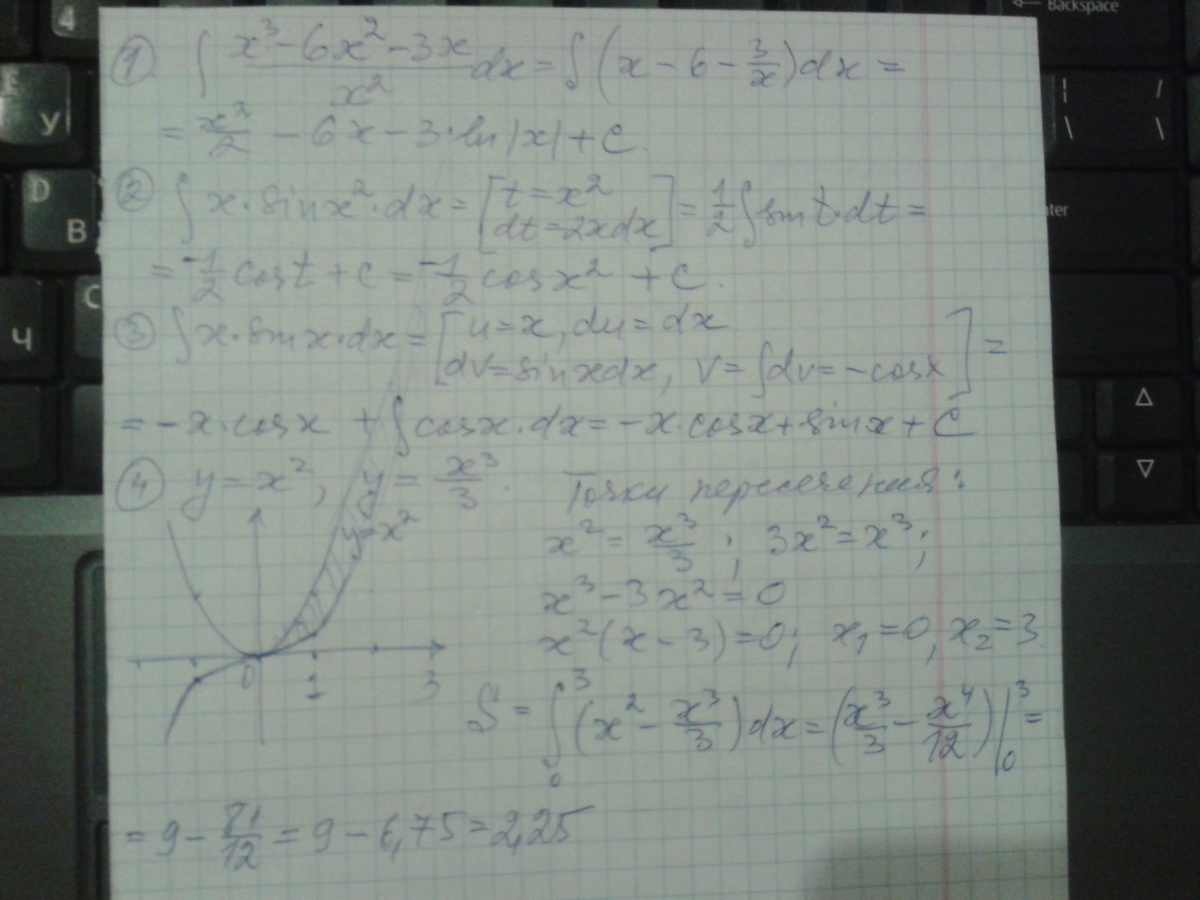 Backspace
4
У
D
В
C
Ч
nter
① ∫ (x³-6x²-3x)/x² dx = ∫(x - 6 - 3/x)dx =
= x²/2 - 6x - 3·ln|x| + C.
② ∫ x·sinx²·dx = [t=x², dt=2xdx] = 1/2 ∫sint·dt =
= -1/2 cost + C = -1/2 cosx² + C.
③ ∫x·sinx·dx = [u=x, du=dx
dv=sinxdx, v=∫dv=-cosx] =
= -x·cosx + ∫cosx·dx = -x·cosx + sinx + C
④ y=x², y= x³/3. Точки пересечения:
x² = x³/3; 3x²=x³;
y=x²
x³-3x²=0
x²(x-3)=0; x₁=0, x₂=3.
0 1 3
S = ∫₀³ (x² - x³/3)dx = (x³/3 - x⁴/12)|₀³ =
= 9 - 81/12 = 9 - 6,75 = 2,25